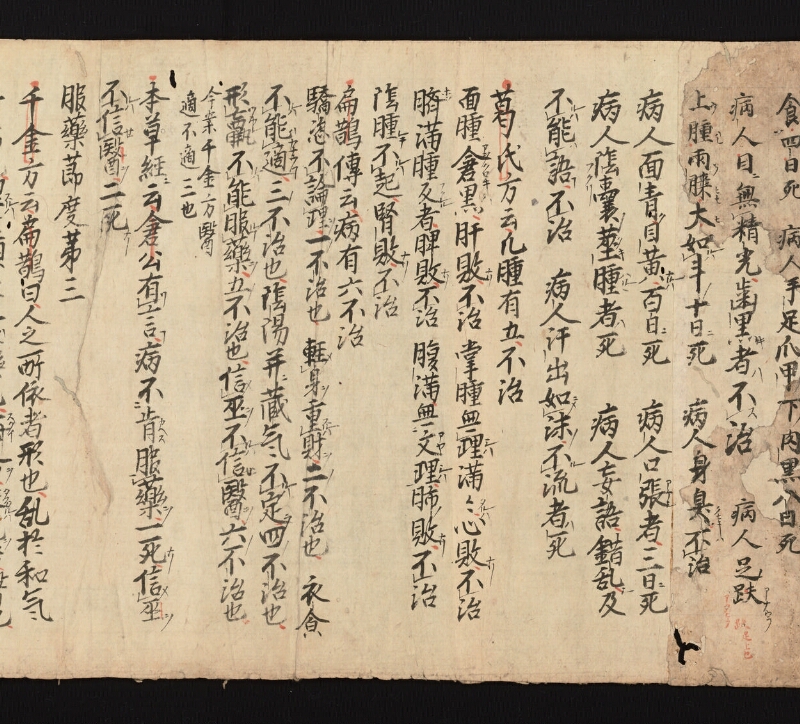 食四日死 病人手足爪甲下肉黒八日死
病人目無精光歯黒者不治 病人足趺
上腫両膝大如斗十日死 病人身臭不治
病人面青目黄百日死 病人口張者三日死
病人陰囊莖腫者死 病人妄語錯乱及
不能語不治 病人汗出如沫不流者死
葛氏方云凡腫有五不治
面腫倉黒肝敗不治 掌腫無理滿〻心敗不治
臍滿腫反者脾敗不治 腹滿無文理肺敗不治
陰腫不起腎敗不治
扁鵲傳云病有六不治
驕恣不論理一不治也 軽身重財二不治也 衣食
不能適三不治也 陰陽并藏气不定四不治也
形羸不能服藥五不治也 信巫不信醫六不治也
今案千金方醫
適不適三也
本草經云倉公有言病不肯服藥一死信巫
不信醫二死
服藥莭度第三
千金方云扁鵲曰人之所依者形也乱於和气